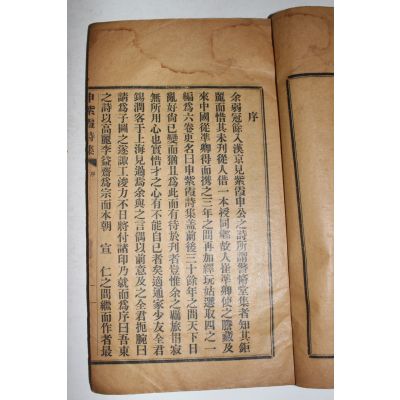 序
余弱冠餘入漢京見紫霞申公之詩所謂警脩堂集者知其鉅
麗而惜其未刊從人借一本授同鄕故人崔準卿使之謄藏及
來中國從準卿得而携之三年之間再加繹玩姑選取四之一
編爲六卷更名曰申紫霞詩集盖前後三十餘年之間天下日
亂好尙已變而猶且爲此而有待於刋者豈惟余之羈旅閒寂
無所用心也實惜才之心有不能自已者矣適通家少友全君
錫潤客于上海見過爲余與之言偶以前意及之全君扼腕曰
請爲子圖之遂諏工浚力不日將付諸印乃就而爲序曰吾東
之詩以高麗李益齋爲宗而本朝　宣　仁之間繼而作者最
申紫霞詩集　序